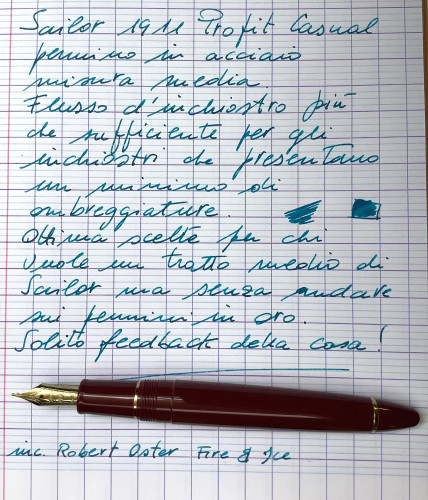 Sailor 1911 Profit Casual
pennino in acciaio
misura media.
Flusso d'inchiostro più
che sufficiente per gli
inchiostri che presentano
un minimo di
ombreggiature.
Ottima scelta per chi
vuole un tratto medio di
Sailor ma senza andare
sui pennini in oro.
Solito feedback della casa!
inc. Robert Oster Fire & Ice